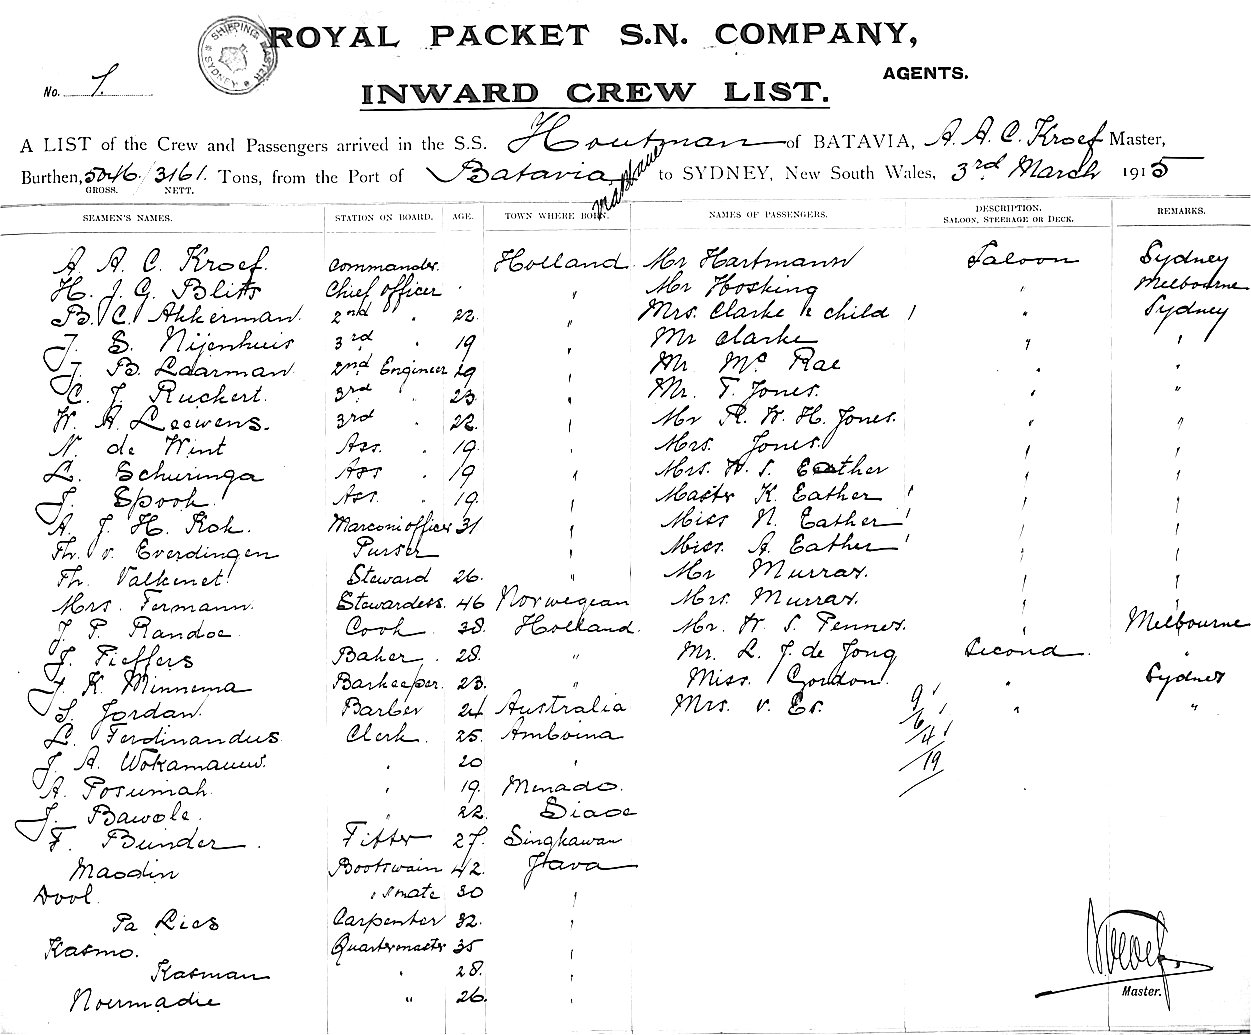 ROYAL PACKET S.N. COMPANY,
SHIPPING MASTER SYDNEY
AGENTS.
No. 1.
INWARD CREW LIST.
A LIST of the Crew and Passengers arrived in the S.S. Houtman of BATAVIA, A. A. C. Kroef Master,
Burthen, 5046/3161. Tons, from the Port of Batavia to SYDNEY, New South Wales, 3rd March 1915
GROSS. NETT.
SEAMEN'S NAMES. STATION ON BOARD. AGE. TOWN WHERE BORN. NAMES OF PASSENGERS. DESCRIPTION. SALOON, STEERAGE OR DECK. REMARKS.
A. A. C. Kroef. Commander. Holland. Mr Hartmann Saloon Sydney
H. J. G. Blitts Chief officer " Mr Hosking " Melbourne
B. C. Akkerman. 2nd " 22. " Mrs. Clarke & child 1 " Sydney
J. S. Nijenhuis 3rd " 19 " Mr Clarke " "
J. B. Laarman 2nd Engineer 29 " Mr. Mc Rae " "
C. J. Ruckert. 3rd " 23. " Mr. T. Jones. " "
W. A. Leewens. 3rd " 22. " Mr R. W. H. Jones. " "
N. de Wint Ass. " 19. " Mrs. Jones. " "
L. Schuringa Ass " 19 " Mrs. W. S. Eather " "
J. Spook. Ass. " 19. " Master K. Eather 1 " "
A. J. H. Rok. Marconi officer 31 " Miss N. Eather 1 " "
Th. v. Everdingen Purser " Miss. A. Eather 1 " "
Th. Valkenet. Steward 26. " Mr Murray. " "
Mrs. Termann. Stewardess. 46 Norwegian Mrs. Murray. " "
J. P. Randoe Cook 38. Holland. Mr. W. S. Penner. " Melbourne
J. Pieffers Baker. 28. " Mr. L. J. de Jong Second. "
J. K. Minnema Barkeeper. 23. " Miss. Gordon. " Sydney
S. Jordan. Barber 24 Australia Mrs. v. Es. " "
L. Ferdinandus Clerk. 25. Amboina
J. A. Wokamauw. " 20 "
A. Posumah. " 19. Menado.
J. Bawole. " 22. Siaoe
F. Bunder. Fitter 27. Singkawan
Maodin Bootswain 42. Java
Dool. " s mate 30 "
Pa Lies Carpenter 32. "
Kasmo. Quartermaster 35 "
Kasman " 28. "
Noermadie " 26. "
Master.